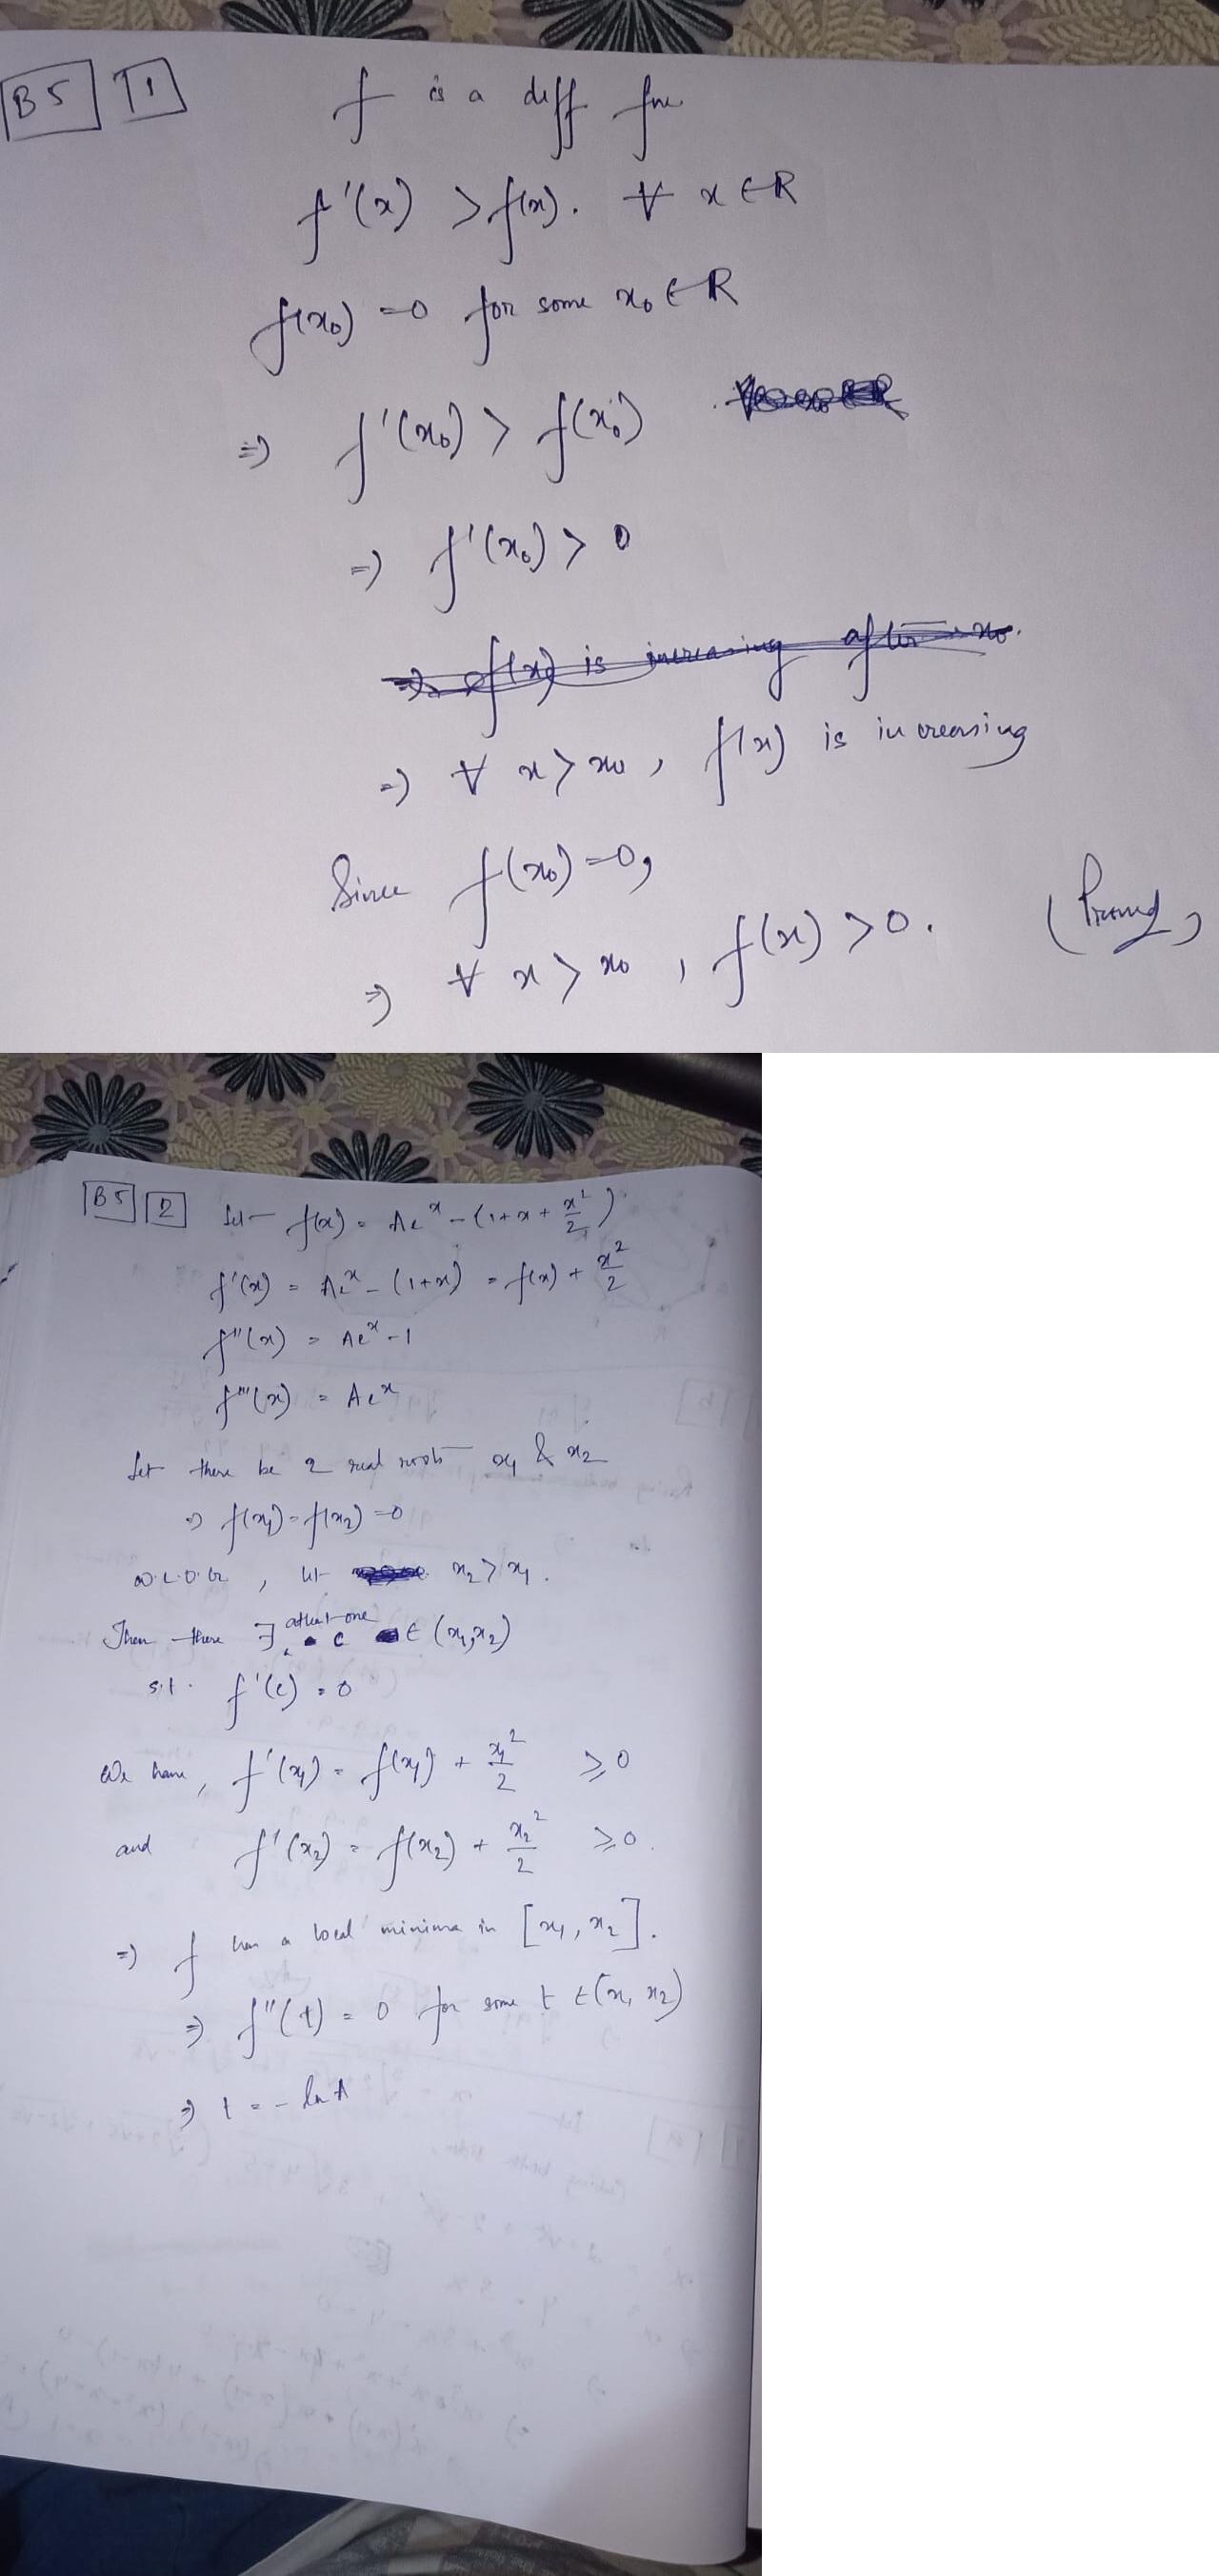 B5 1 f is a diff fn.
f'(x) > f(x). ∀ x ∈ R
f(x₀) = 0 for some x₀ ∈ R
⇒ f'(x₀) > f(x₀)
⇒ f'(x₀) > 0
⇒ f(x) is increasing after x₀.
⇒ ∀ x > x₀, f(x) is increasing
Since f(x₀) = 0,
⇒ ∀ x > x₀, f(x) > 0. (Proved)
B5 2 Let f(x) = Ae^x - (1 + x + x²/2)
f'(x) = Ae^x - (1+x) = f(x) + x²/2
f''(x) = Ae^x - 1
f'''(x) = Ae^x
Let there be 2 real roots x₁ & x₂
⇒ f(x₁) = f(x₂) = 0
W.L.O.G, let x₂ > x₁.
Then there ∃ atleast one c ∈ (x₁, x₂)
s.t. f'(c) = 0
We have, f'(x₁) = f(x₁) + x₁²/2 ≥ 0
and f'(x₂) = f(x₂) + x₂²/2 ≥ 0.
⇒ f has a local minima in [x₁, x₂].
⇒ f''(t) = 0 for some t ∈ (x₁, x₂)
⇒ t = - ln A